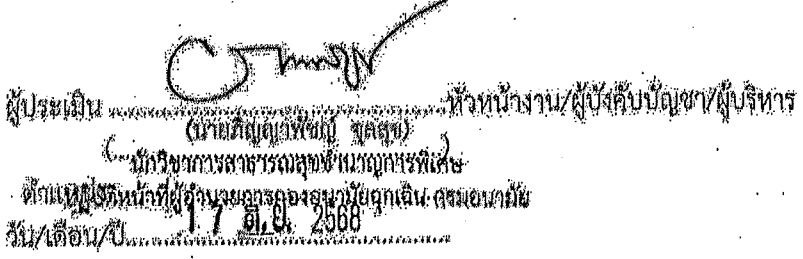 ผู้ประเมิน ........................ หัวหน้างาน/ผู้บังคับบัญชา/ผู้บริหาร
(นายภิญญาพัชญ์ จุลสุข)
นักวิชาการสาธารณสุขชำนาญการพิเศษ
ตำแหน่ง หน้าที่ผู้อำนวยการกองอนามัยฉุกเฉิน กรมอนามัย
วัน/เดือน/ปี 17 มิ.ย. 2568